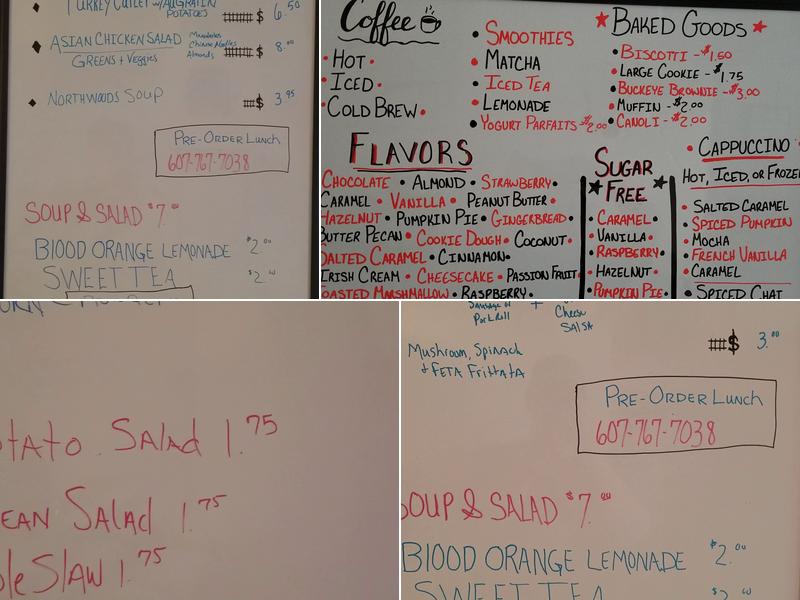 TURKEY CUTLET W/AUGRATIN
POTATOES $ 6.50
ASIAN CHICKEN SALAD
Mandarins
Chinese Noodles
Almonds $ 8.00
GREENS + Veggies
NORTHWOODS SOUP $ 3.95
PRE-ORDER LUNCH
607-767-7038
SOUP & SALAD $7.00
BLOOD ORANGE LEMONADE $2.00
SWEET TEA $2.00
Coffee
• HOT •
• ICED •
• COLD BREW •
• SMOOTHIES
• MATCHA
• ICED TEA
• LEMONADE
• YOGURT PARFAITS - $2.00
★ BAKED GOODS ★
• BISCOTTI - $1.50
• LARGE COOKIE - $1.75
• BUCKEYE BROWNIE - $3.00
• MUFFIN - $2.00
• CANOLI - $2.00
FLAVORS
CHOCOLATE • ALMOND • STRAWBERRY •
CARAMEL • VANILLA • PEANUT BUTTER •
HAZELNUT • PUMPKIN PIE • GINGERBREAD •
BUTTER PECAN • COOKIE DOUGH • COCONUT •
SALTED CARAMEL • CINNAMON •
IRISH CREAM • CHEESECAKE • PASSION FRUIT
OASTED MARSHMALLOW • RASPBERRY •
★ SUGAR FREE ★
• CARAMEL •
• VANILLA •
• RASPBERRY •
• HAZELNUT •
• PUMPKIN PIE •
• CAPPUCCINO •
HOT, ICED, OR FROZEN
• SALTED CARAMEL
• SPICED PUMPKIN
• MOCHA
• FRENCH VANILLA
• CARAMEL
• SPICED CHAI
otato Salad 1.75
EAN Salad 1.75
ole Slaw 1.75
Sausage or
Pork Roll +
Cheese
SALSA
Mushroom, Spinach
+ FETA Frittata $ 3.00
PRE-ORDER LUNCH
607-767-7038
SOUP & SALAD $7.00
BLOOD ORANGE LEMONADE $2.00
SWEET TEA $2.00